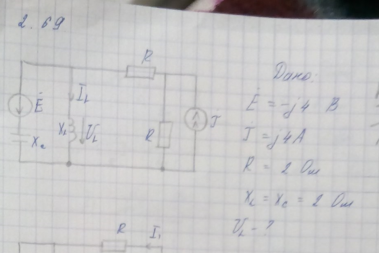 2.69
R
Дано:
I_L
Ė
Ė = -j4 В
X_L
U_L
R
J
J = j4 А
X_c
R = 2 Ом
X_L = X_c = 2 Ом
U_L - ?
R
I_1